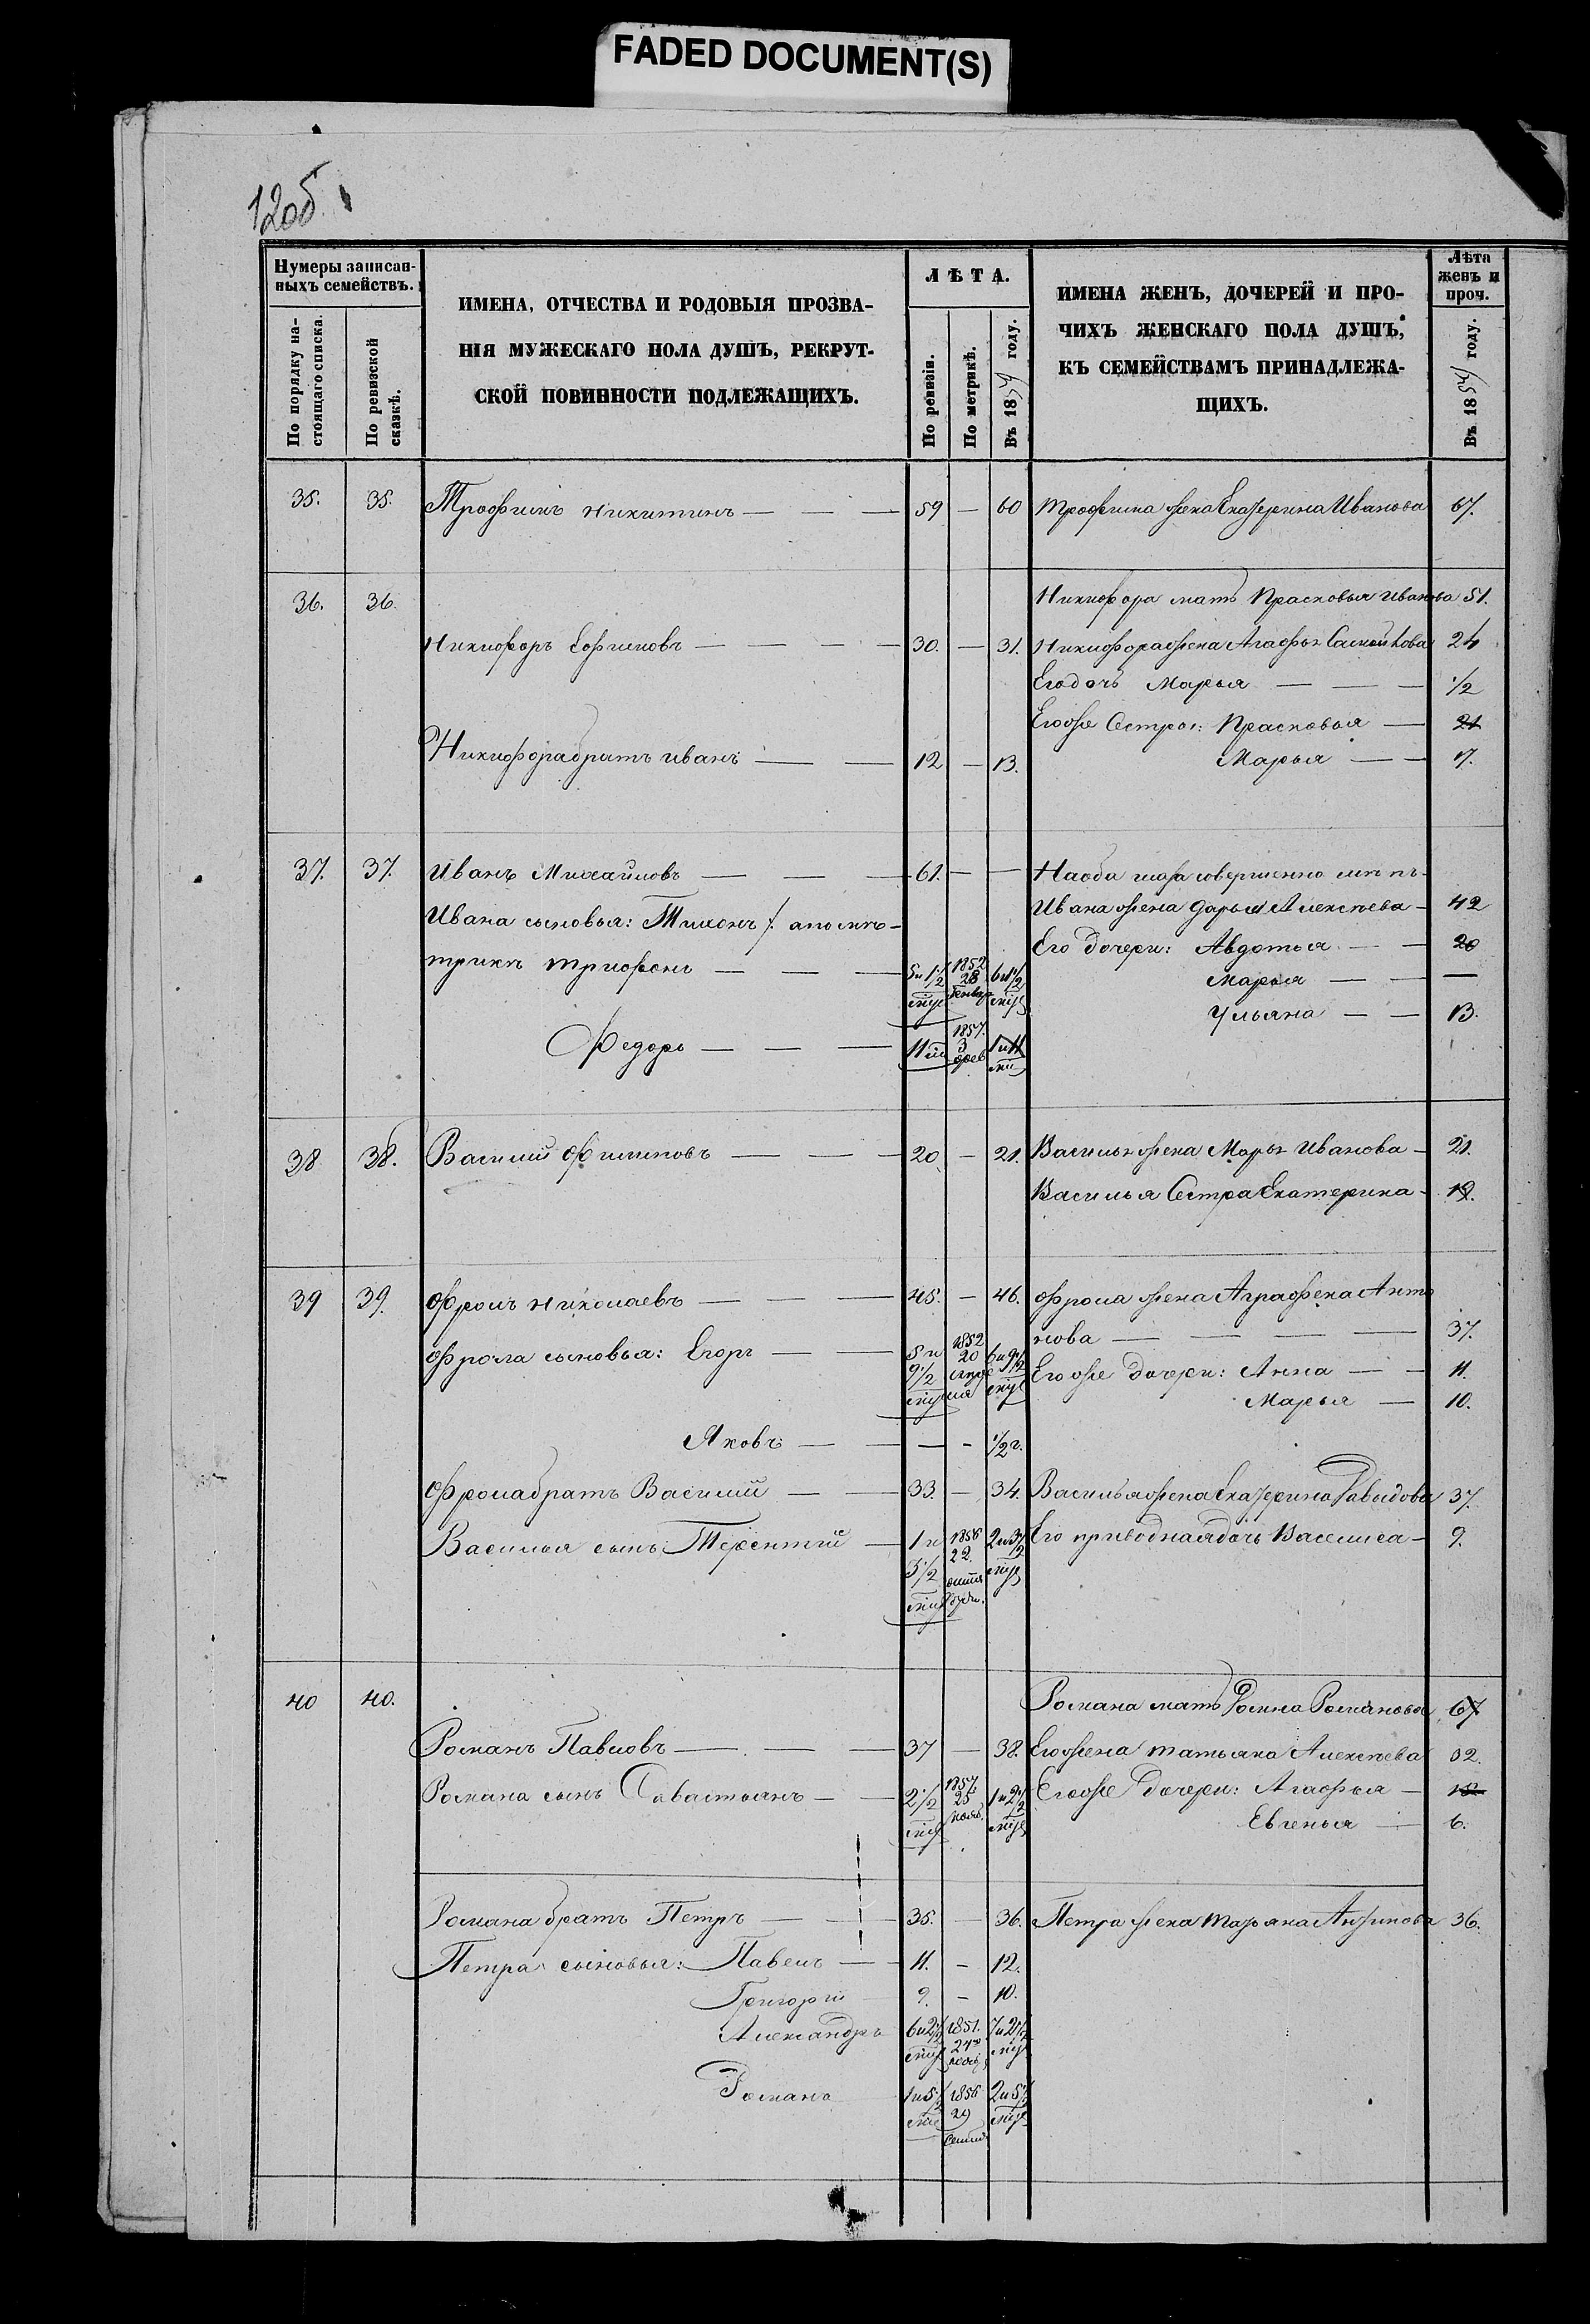 FADED DOCUMENT(S)
12об.
Нумеры записан-
ныхъ семействъ.
По порядку на-
стоящаго списка.
По ревизской
сказкѣ.
ИМЕНА, ОТЧЕСТВА И РОДОВЫЯ ПРОЗВА-
НІЯ МУЖЕСКАГО ПОЛА ДУШЪ, РЕКРУТ-
СКОЙ ПОВИННОСТИ ПОДЛЕЖАЩИХЪ.
ЛѢТА.
По ревизіи.
По метрикѣ.
Въ 18 году.
ИМЕНА ЖЕНЪ, ДОЧЕРЕЙ И ПРО-
ЧИХЪ ЖЕНСКАГО ПОЛА ДУШЪ,
КЪ СЕМЕЙСТВАМЪ ПРИНАДЛЕЖА-
ЩИХЪ.
Лѣта
женъ и
проч.
Въ 18 году.
35. 35. Трофимъ Никитинъ — — — 59 — 60 Трофима жена Екатерина Иванова 67.
36. 36. Никифора мать Прасковья Иванова 51.
Никифоръ Ефимовъ — — — — 30. — 31. Никифора жена Агафья 24
Его дочь Марья — — — 1/2
Его же Сестры: Прасковья — 21
Никифора братъ Иванъ — — 12 — 13. Марья — — 17.
37. 37. Иванъ Михайловъ — — — 61. — — На оба глаза совершенно слѣпъ
Ивана сыновья: Тихонъ /: а по ме- Ивана жена Дарья Алексѣева — 42
Его дочери: Авдотья — — 20
трикѣ Трифонъ — — — 5 и 1 1/2 1852 28 Генвар 6 и 1 1/2
Марья — — —
Ульяна — — 13.
Федоръ — — — 11 м 1857. 3 фев 1 и 11
38 38. Василий Филиповъ — — — 20 — 21. Василья жена Марья Иванова — 21.
Василья Сестра Екатерина — 19.
39 39. Фролъ Николаевъ — — — 45. — 46. Фрола жена Аграфена Анто
нова — — — — 37.
Фрола сыновья: Егоръ — — 5 и 9 1/2 1852 20 6 и 9 1/2
Его же дочери: Анна — — 11.
Марья — 10.
Яковъ — — — - 1/2 г.
Фрола братъ Василий — — 33. — 34. Василья жена Екатерина Давыдова 37.
Василья сынъ Терентий — 1 и 3 1/2 1856 22 октя бря. 2 и 3 1/2 Его приводная дочь Василиса — 9.
40 40. Романа мать Романова 67
Романъ Павловъ — — — 37 — 38. Его жена Татьяна Алексѣева 32.
Романа сынъ Савастьянъ — — 2 1/2 1857. 25 нояб. 1 и 2 1/2 Его же дочери: Агафья —
Евгенья — 6.
Романа братъ Петръ — — 35. — 36. Петра жена Татьяна 36.
Петра сыновья: Павелъ — 11. — 12.
Григорій 9. — 10.
Александръ 6 и 2 1/2 1851. 24го нояб 7 и 2 1/2
Романъ 1 и 5 1856 29 сент 2 и 5